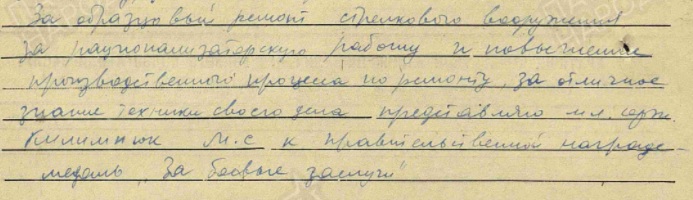 За образцовый ремонт стрелкового вооружения
за рационализаторскую работу и повышение
производственного процеса по ремонту, за отличное
знание техники своего дела представляю мл. серж.
Климнюк М.С к правительственной награде
медаль „За боевые заслуги"